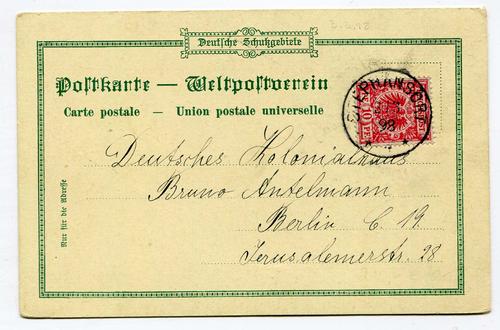 Deutsche Schutzgebiete
Postkarte — Weltpostverein
Carte postale — Union postale universelle
STEPHANSORT
98
Deutsches Kolonialhaus
Bruno Antelmann
Berlin C. 19
Jerusalemerstr. 28
Nur für die Adresse